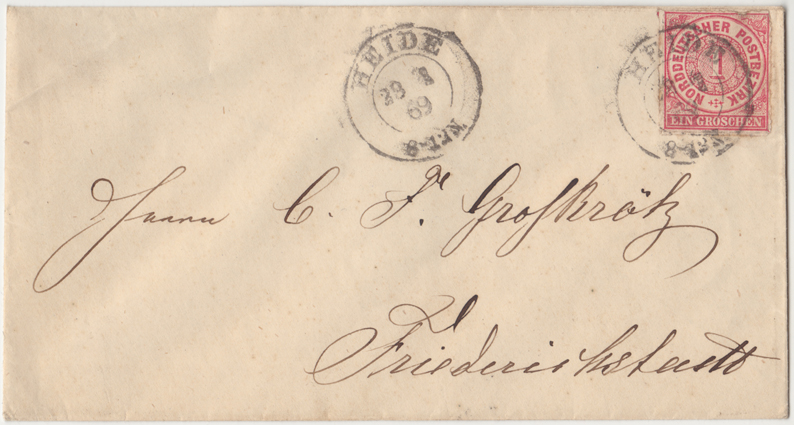 HEIDE
28 8
69
8-12N
HEIDE
8-12N
NORDDEUTSCHER POSTBEZIRK
1
EIN GROSCHEN
Herrn C. F. Großkrötz
Friederichstadt